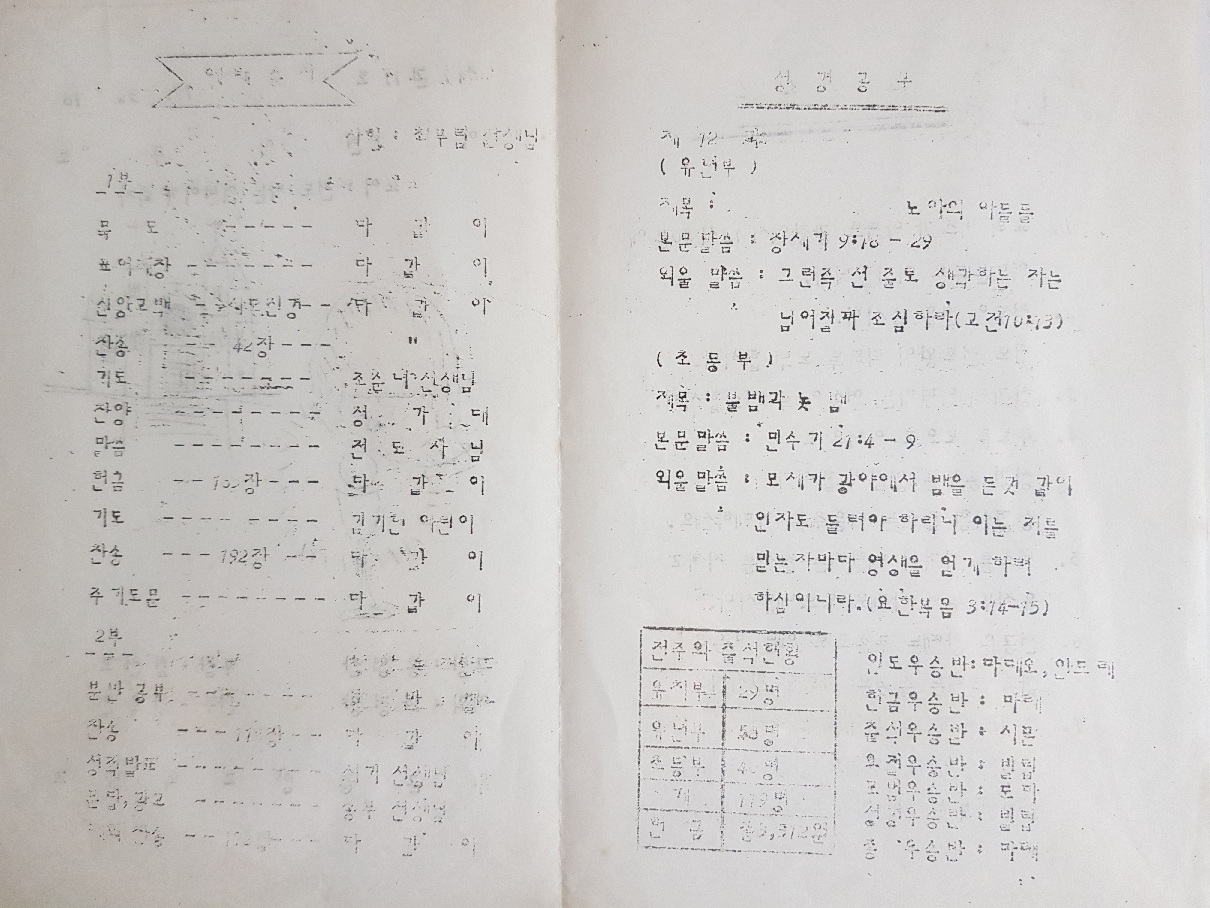 사회 : 최무림 선생님
1부
묵 도 ------ 다 같 이
표어제창 -------- 다 같 이
신앙고백 -- 사도신경 -- 다 같 이
찬송 --- 42장 --- "
기도 ------- 선생님
찬양 -------- 성 가 대
말씀 -------- 전 도 사 님
헌금 -- 장 --- 다 같 이
기도 ---- ---- 어린이
찬송 --- 192장 -- 다 같 이
주기도문 -------- 다 같 이
2부
분반 공부 ------- 분 반 별
찬송 --- 장 -- 다 같 이
성적발표 -------- 서기 선생님
문답, 광고 ------- 총무 선생님
찬송 -- 장 -- 다 같 이
성 경 공 부
제 12 과
( 유년부 )
제목 : 노아의 아들들
본문말씀 : 창세기 9:18 - 29
외울 말씀 : 그런즉 선 줄로 생각하는 자는
넘어질까 조심하라(고전10:13)
( 초 등 부 )
제목 : 불뱀과 놋 뱀
본문말씀 : 민수기 21:4 - 9
외울말씀 : 모세가 광야에서 뱀을 든것 같이
인자도 들려야 하리니 이는 저를
믿는자마다 영생을 얻게 하려
하심이니라.(요한복음 3:14-15)
전주의 출석현황
유치부 29명
유년부 50명
초등부 명
계 119명
헌 금 총3,312원
인도우승반: 마태오, 안드레
헌금우승반 : 마태
출석우승반 : 시몬
요절우승반 : 빌립
모범우승반 : 도마
성경우승반 : 빌립
총 우승반 : 마태